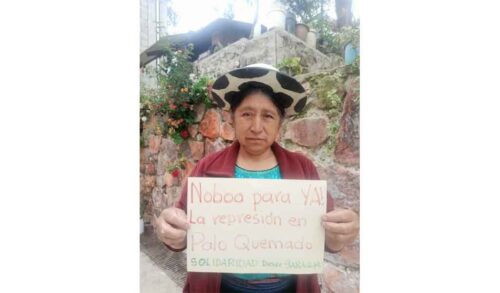 Noboo para YA!
La represión en
Palo Quemado
SOLIDARIDAD Desde